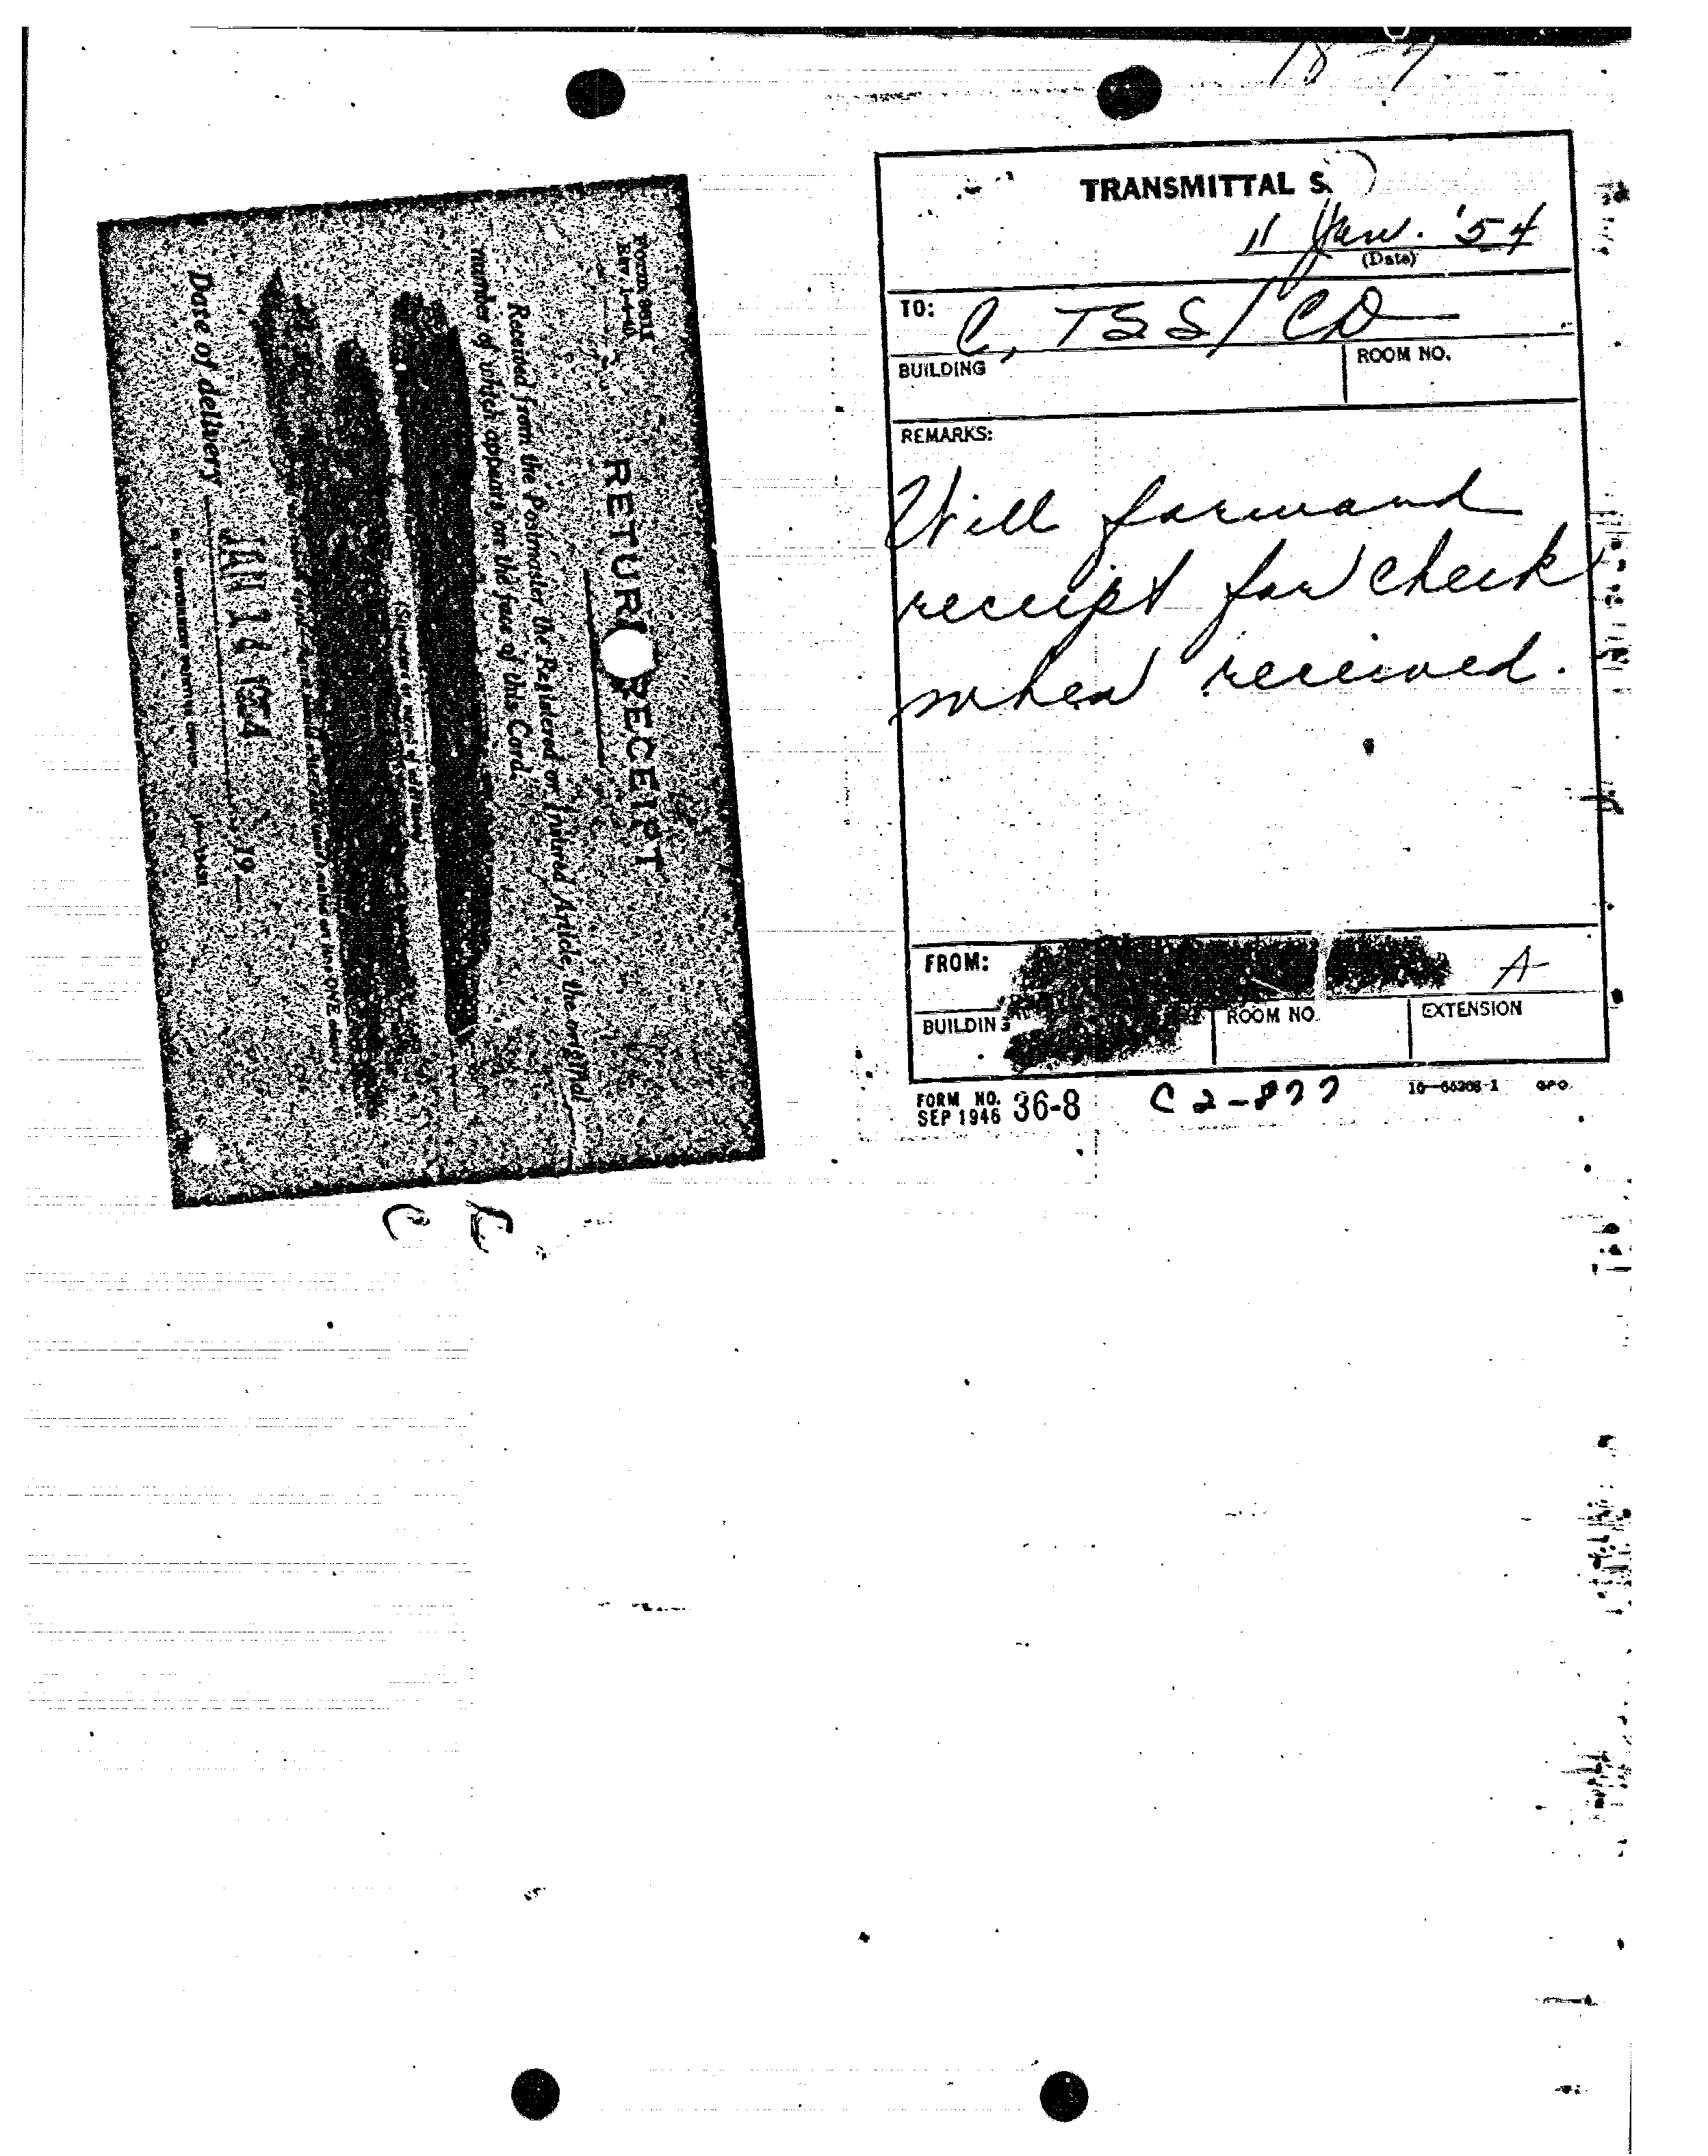 18-7
RETURN RECEIPT
Received from the Postmaster the Registered or Insured Article, the original
number of which appears on the face of this Card.
Date of delivery JAN 14 1954 19
TRANSMITTAL S
11 Jan. '54
(Date)
TO: C, TSS/CD
BUILDING ROOM NO.
REMARKS:
Will forward
receipt for check
when received.
FROM: A
BUILDING ROOM NO. EXTENSION
FORM NO. 36-8
SEP 1946
C2-877
GPO